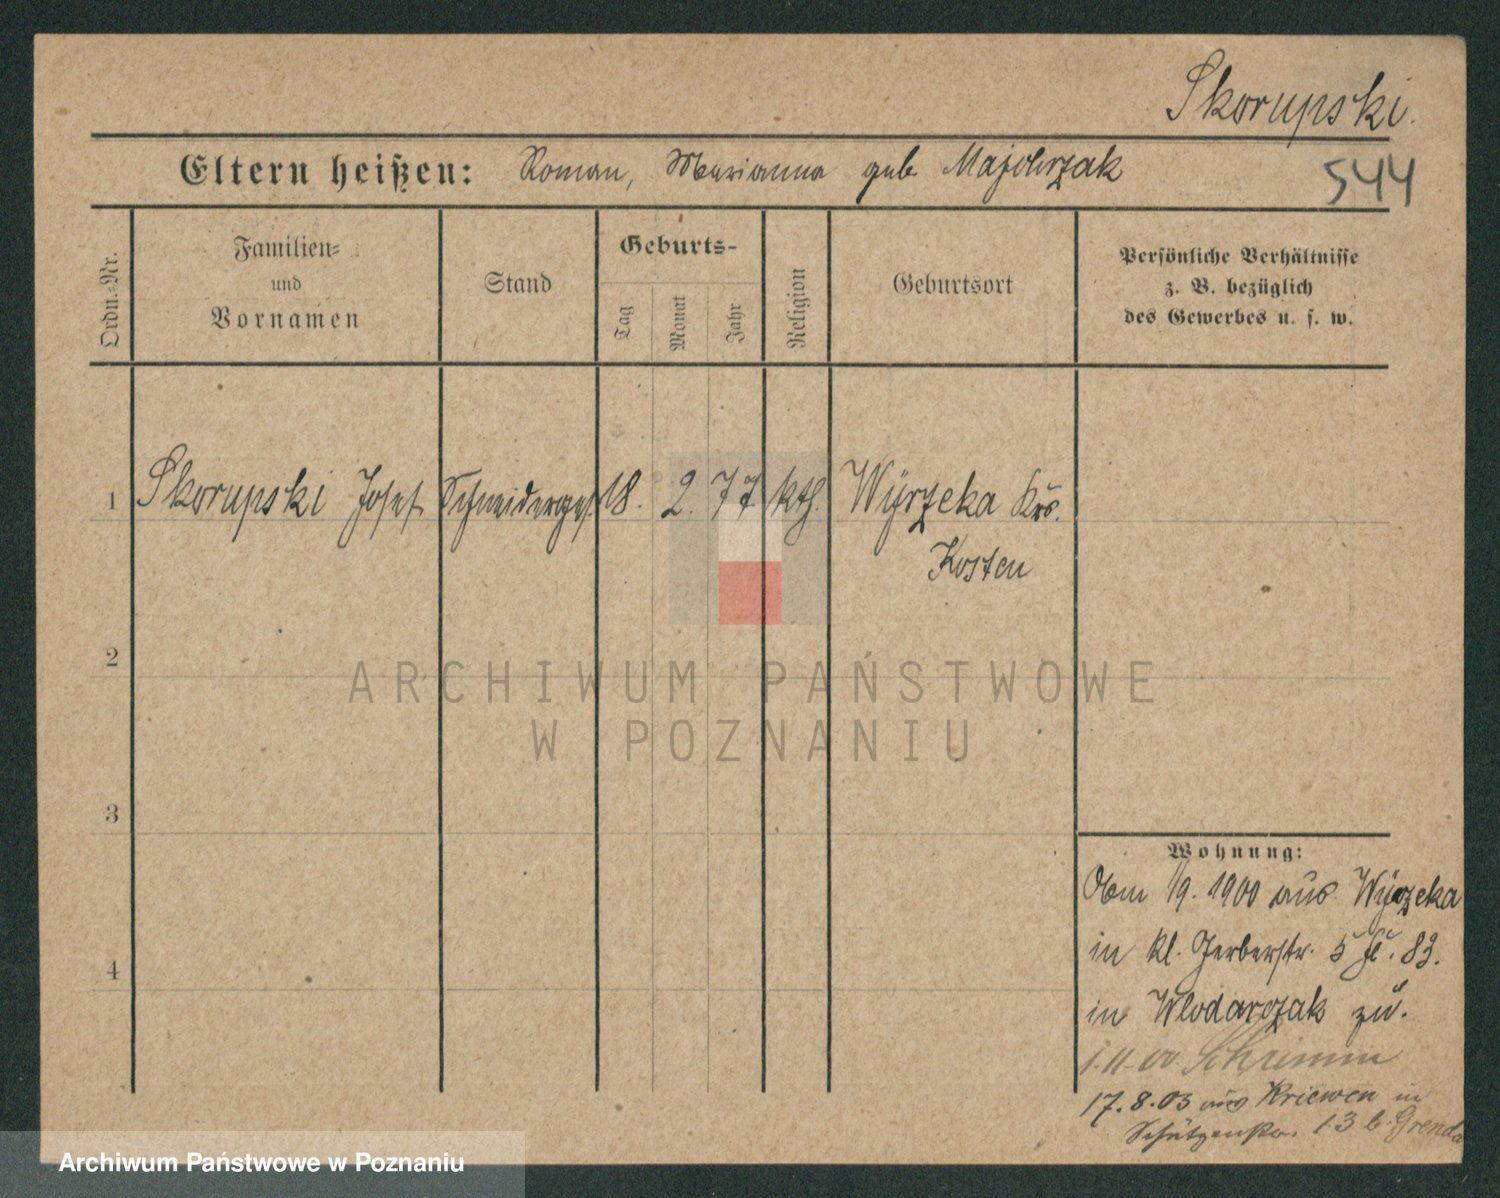 Skorupski.
Eltern heißen: Roman, Marianna geb Majchrzak
544
Ordn.-Nr.
Familien-
und
Vornamen
Stand
Geburts-
Tag
Monat
Jahr
Religion
Geburtsort
Persönliche Verhältnisse
z. B. bezüglich
des Gewerbes u. s. w.
1 Skorupski Josef Schneiderges. 18. 2. 77 kth. Wyrzeka Krs.
Kosten
2
ARCHIWUM PAŃSTWOWE
W POZNANIU
3
4
Wohnung:
1/9. 1900 aus Wyrzeka
in kl. Gerberstr. 5 83.
Wlodarczak zu.
1.11.00. Schrimm
17.8.03 aus Kriewen in
Schützenstr. 13 b. Grenda
Archiwum Państwowe w Poznaniu